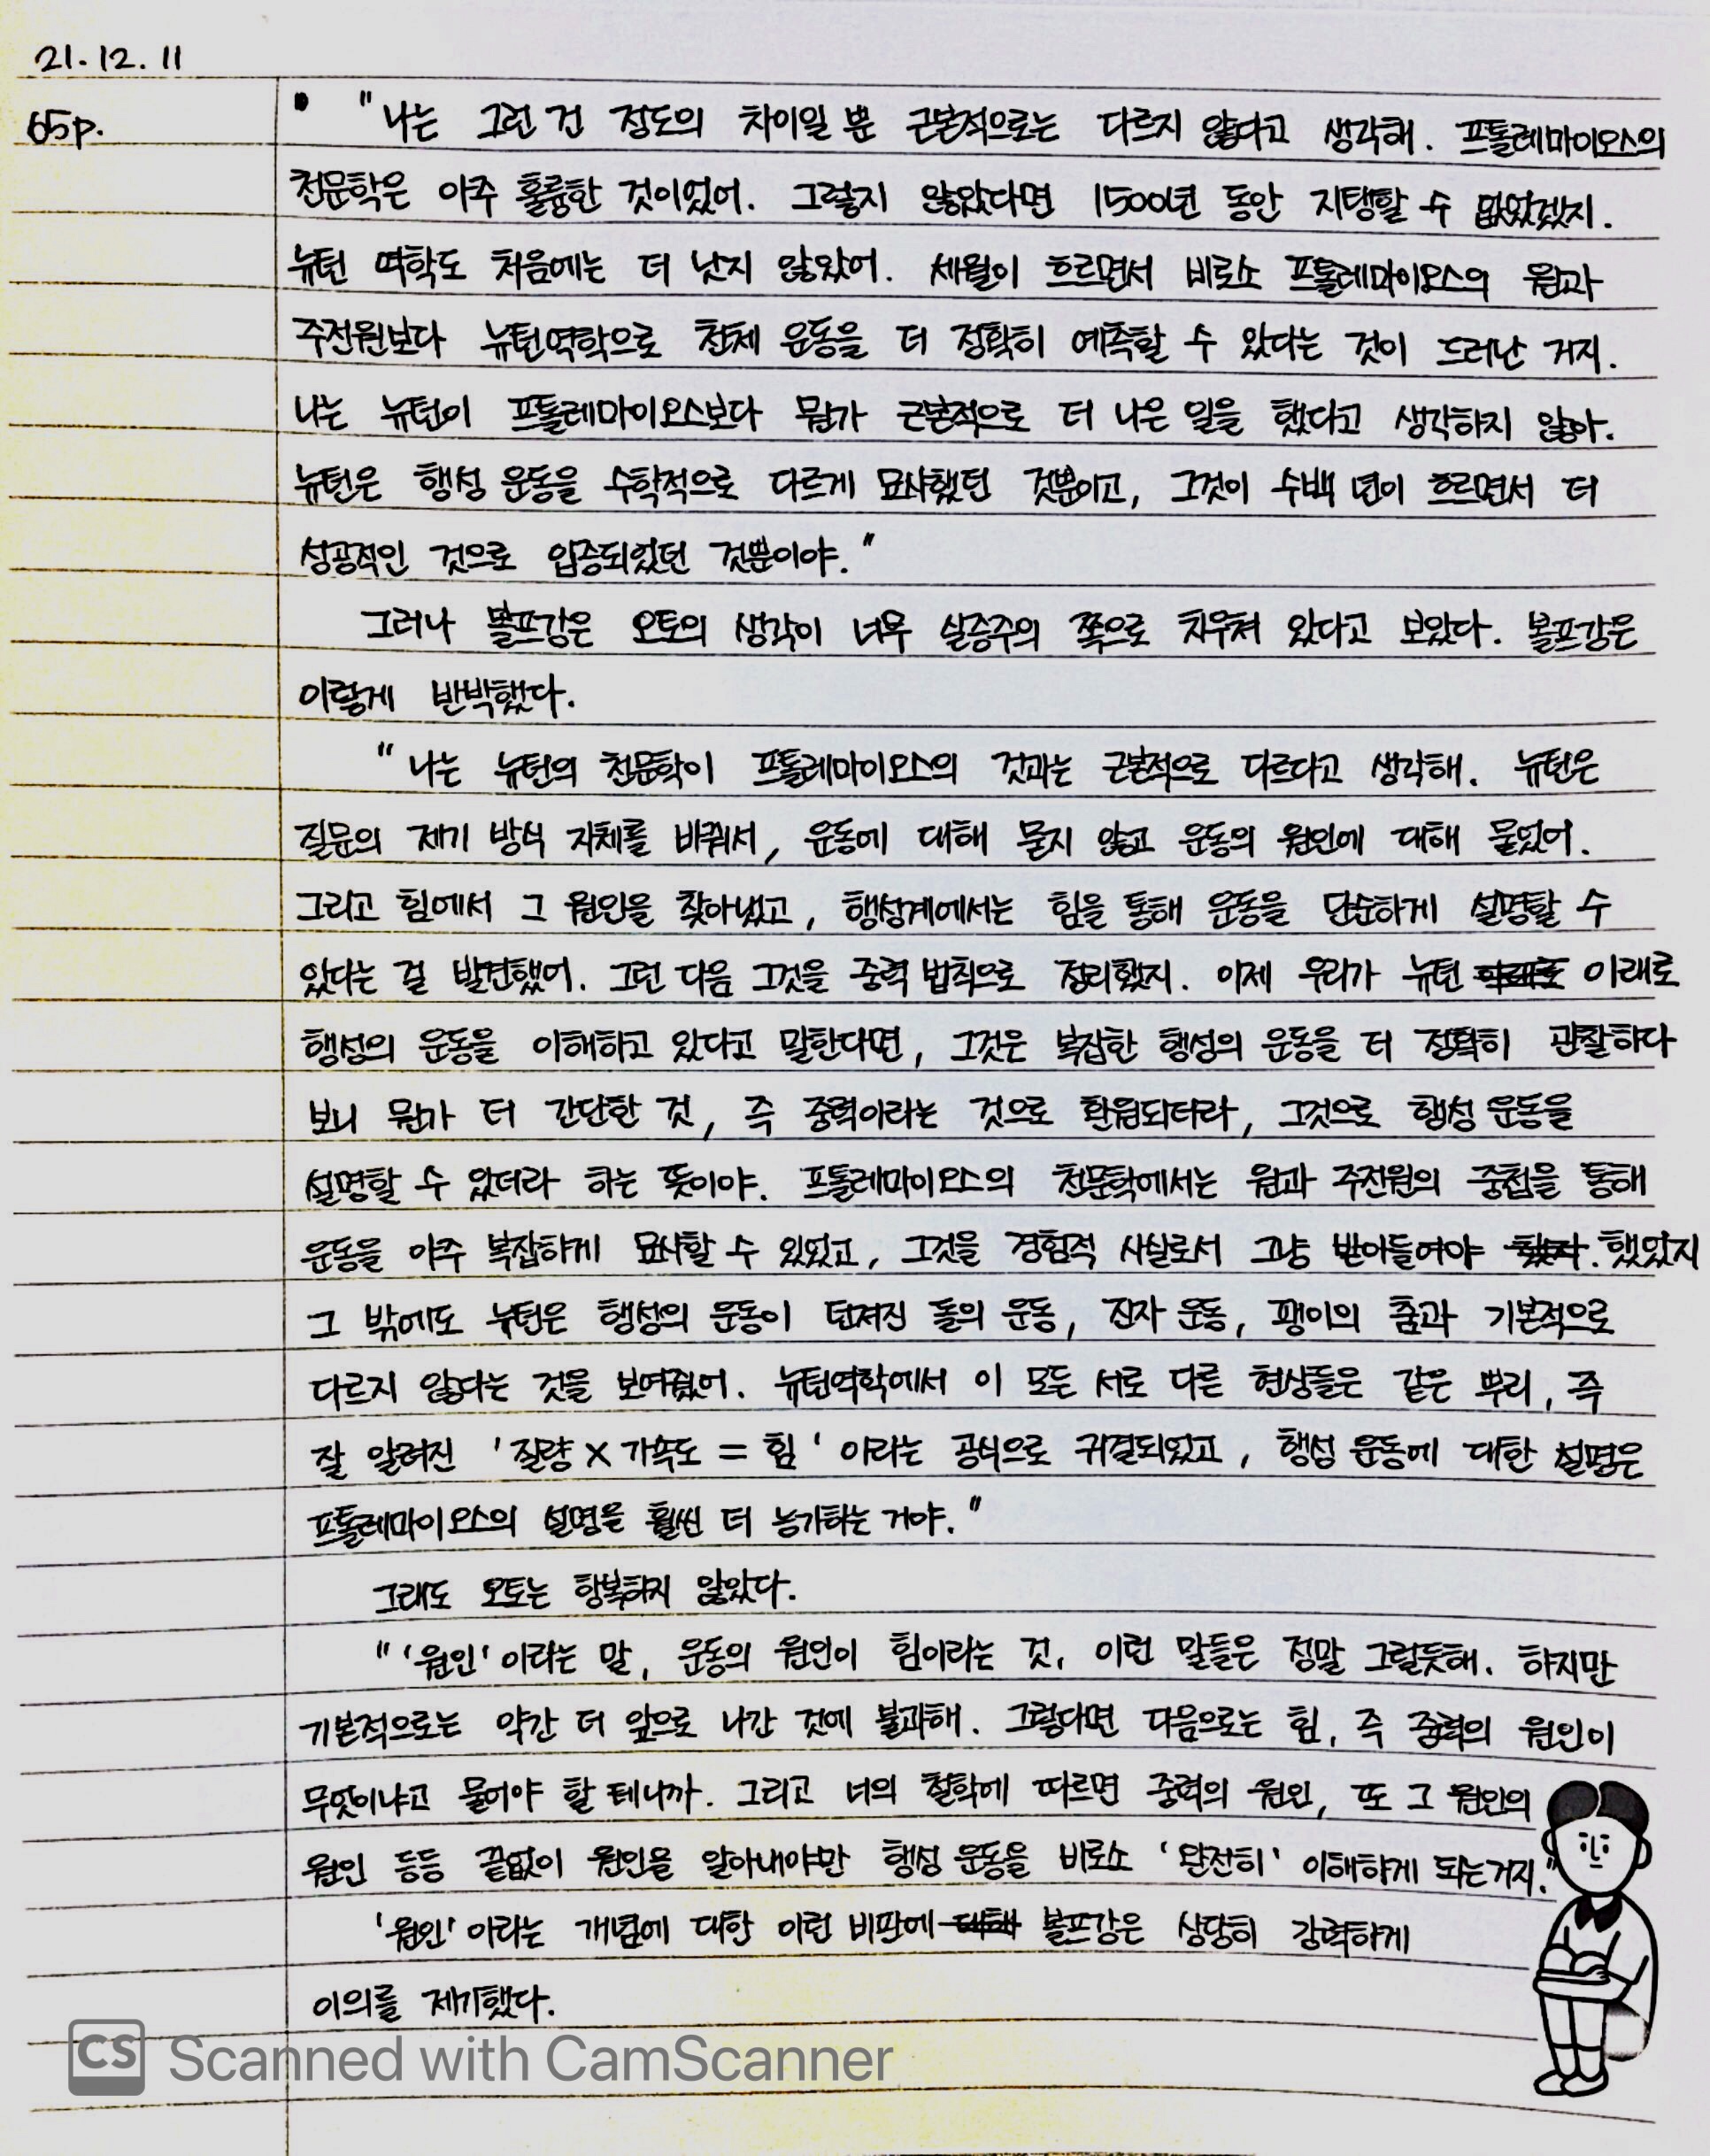 21.12.11
65p.
• "나는 그런 건 정도의 차이일 뿐 근본적으로는 다르지 않다고 생각해. 프톨레마이오스의
천문학은 아주 훌륭한 것이었어. 그렇지 않았다면 1500년 동안 지탱할 수 없었겠지.
뉴턴 역학도 처음에는 더 낫지 않았어. 세월이 흐르면서 비로소 프톨레마이오스의 원과
주전원보다 뉴턴역학으로 천체 운동을 더 정확히 예측할 수 있다는 것이 드러난 거지.
나는 뉴턴이 프톨레마이오스보다 뭔가 근본적으로 더 나은 일을 했다고 생각하지 않아.
뉴턴은 행성 운동을 수학적으로 다르게 묘사했던 것뿐이고, 그것이 수백 년이 흐르면서 더
성공적인 것으로 입증되었던 것뿐이야."
그러나 볼프강은 오토의 생각이 너무 실증주의 쪽으로 치우쳐 있다고 보았다. 볼프강은
이렇게 반박했다.
"나는 뉴턴의 천문학이 프톨레마이오스의 것과는 근본적으로 다르다고 생각해. 뉴턴은
질문의 제기 방식 자체를 바꿔서, 운동에 대해 묻지 않고 운동의 원인에 대해 물었어.
그리고 힘에서 그 원인을 찾아냈고, 행성계에서는 힘을 통해 운동을 단순하게 설명할 수
있다는 걸 발견했어. 그런 다음 그것을 중력 법칙으로 정리했지. 이제 우리가 뉴턴 이래로
행성의 운동을 이해하고 있다고 말한다면, 그것은 복잡한 행성의 운동을 더 정확히 관찰하다
보니 뭔가 더 간단한 것, 즉 중력이라는 것으로 환원되더라, 그것으로 행성 운동을
설명할 수 있더라 하는 뜻이야. 프톨레마이오스의 천문학에서는 원과 주전원의 중첩을 통해
운동을 아주 복잡하게 묘사할 수 있었고, 그것을 경험적 사실로서 그냥 받아들여야 했었지
그 밖에도 뉴턴은 행성의 운동이 던져진 돌의 운동, 진자 운동, 팽이의 춤과 기본적으로
다르지 않다는 것을 보여줬어. 뉴턴역학에서 이 모든 서로 다른 현상들은 같은 뿌리, 즉
잘 알려진 '질량 × 가속도 = 힘' 이라는 공식으로 귀결되었고, 행성 운동에 대한 설명은
프톨레마이오스의 설명을 훨씬 더 능가하는 거야."
그래도 오토는 항복하지 않았다.
"'원인'이라는 말, 운동의 원인이 힘이라는 것, 이런 말들은 정말 그럴듯해. 하지만
기본적으로는 약간 더 앞으로 나간 것에 불과해. 그렇다면 다음으로는 힘, 즉 중력의 원인이
무엇이냐고 물어야 할 테니까. 그리고 너의 철학에 따르면 중력의 원인, 또 그 원인의
원인 등등 끝없이 원인을 알아내야만 행성 운동을 비로소 '완전히' 이해하게 되는거지."
'원인'이라는 개념에 대한 이런 비판에 볼프강은 상당히 강력하게
이의를 제기했다.
CS Scanned with CamScanner